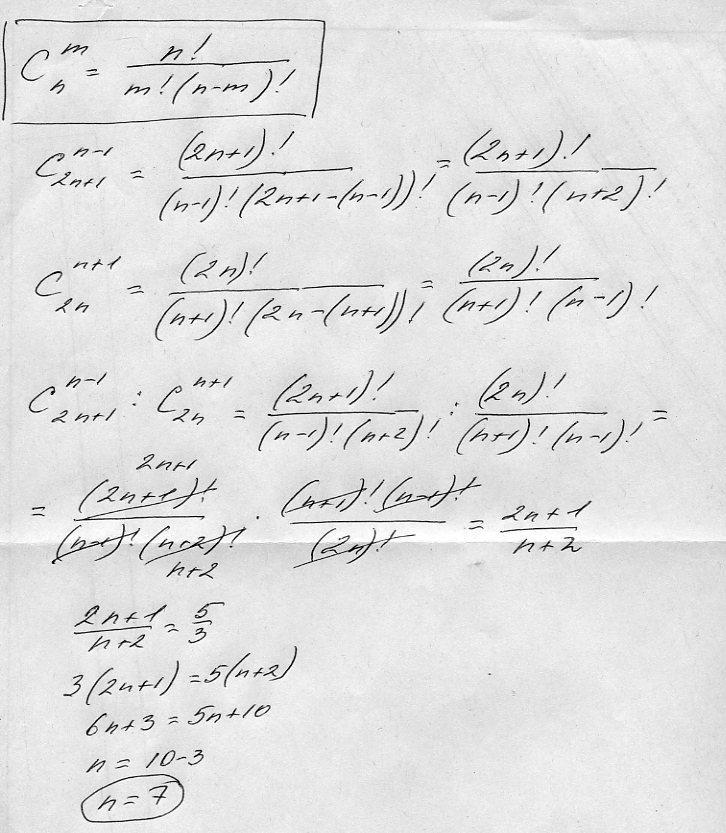 C_n^m = n! / m!(n-m)!
C_{2n+1}^{n-1} = (2n+1)! / (n-1)!(2n+1-(n-1))! = (2n+1)! / (n-1)!(n+2)!
C_{2n}^{n+1} = (2n)! / (n+1)!(2n-(n+1))! = (2n)! / (n+1)!(n-1)!
C_{2n+1}^{n-1} : C_{2n}^{n+1} = (2n+1)! / (n-1)!(n+2)! : (2n)! / (n+1)!(n-1)! =
2n+1
= (2n+1)! / (n-1)!(n+2)! · (n+1)!(n-1)! / (2n)! = 2n+1 / n+2
n+2
2n+1 / n+2 = 5/3
3(2n+1) = 5(n+2)
6n+3 = 5n+10
n = 10-3
n = 7